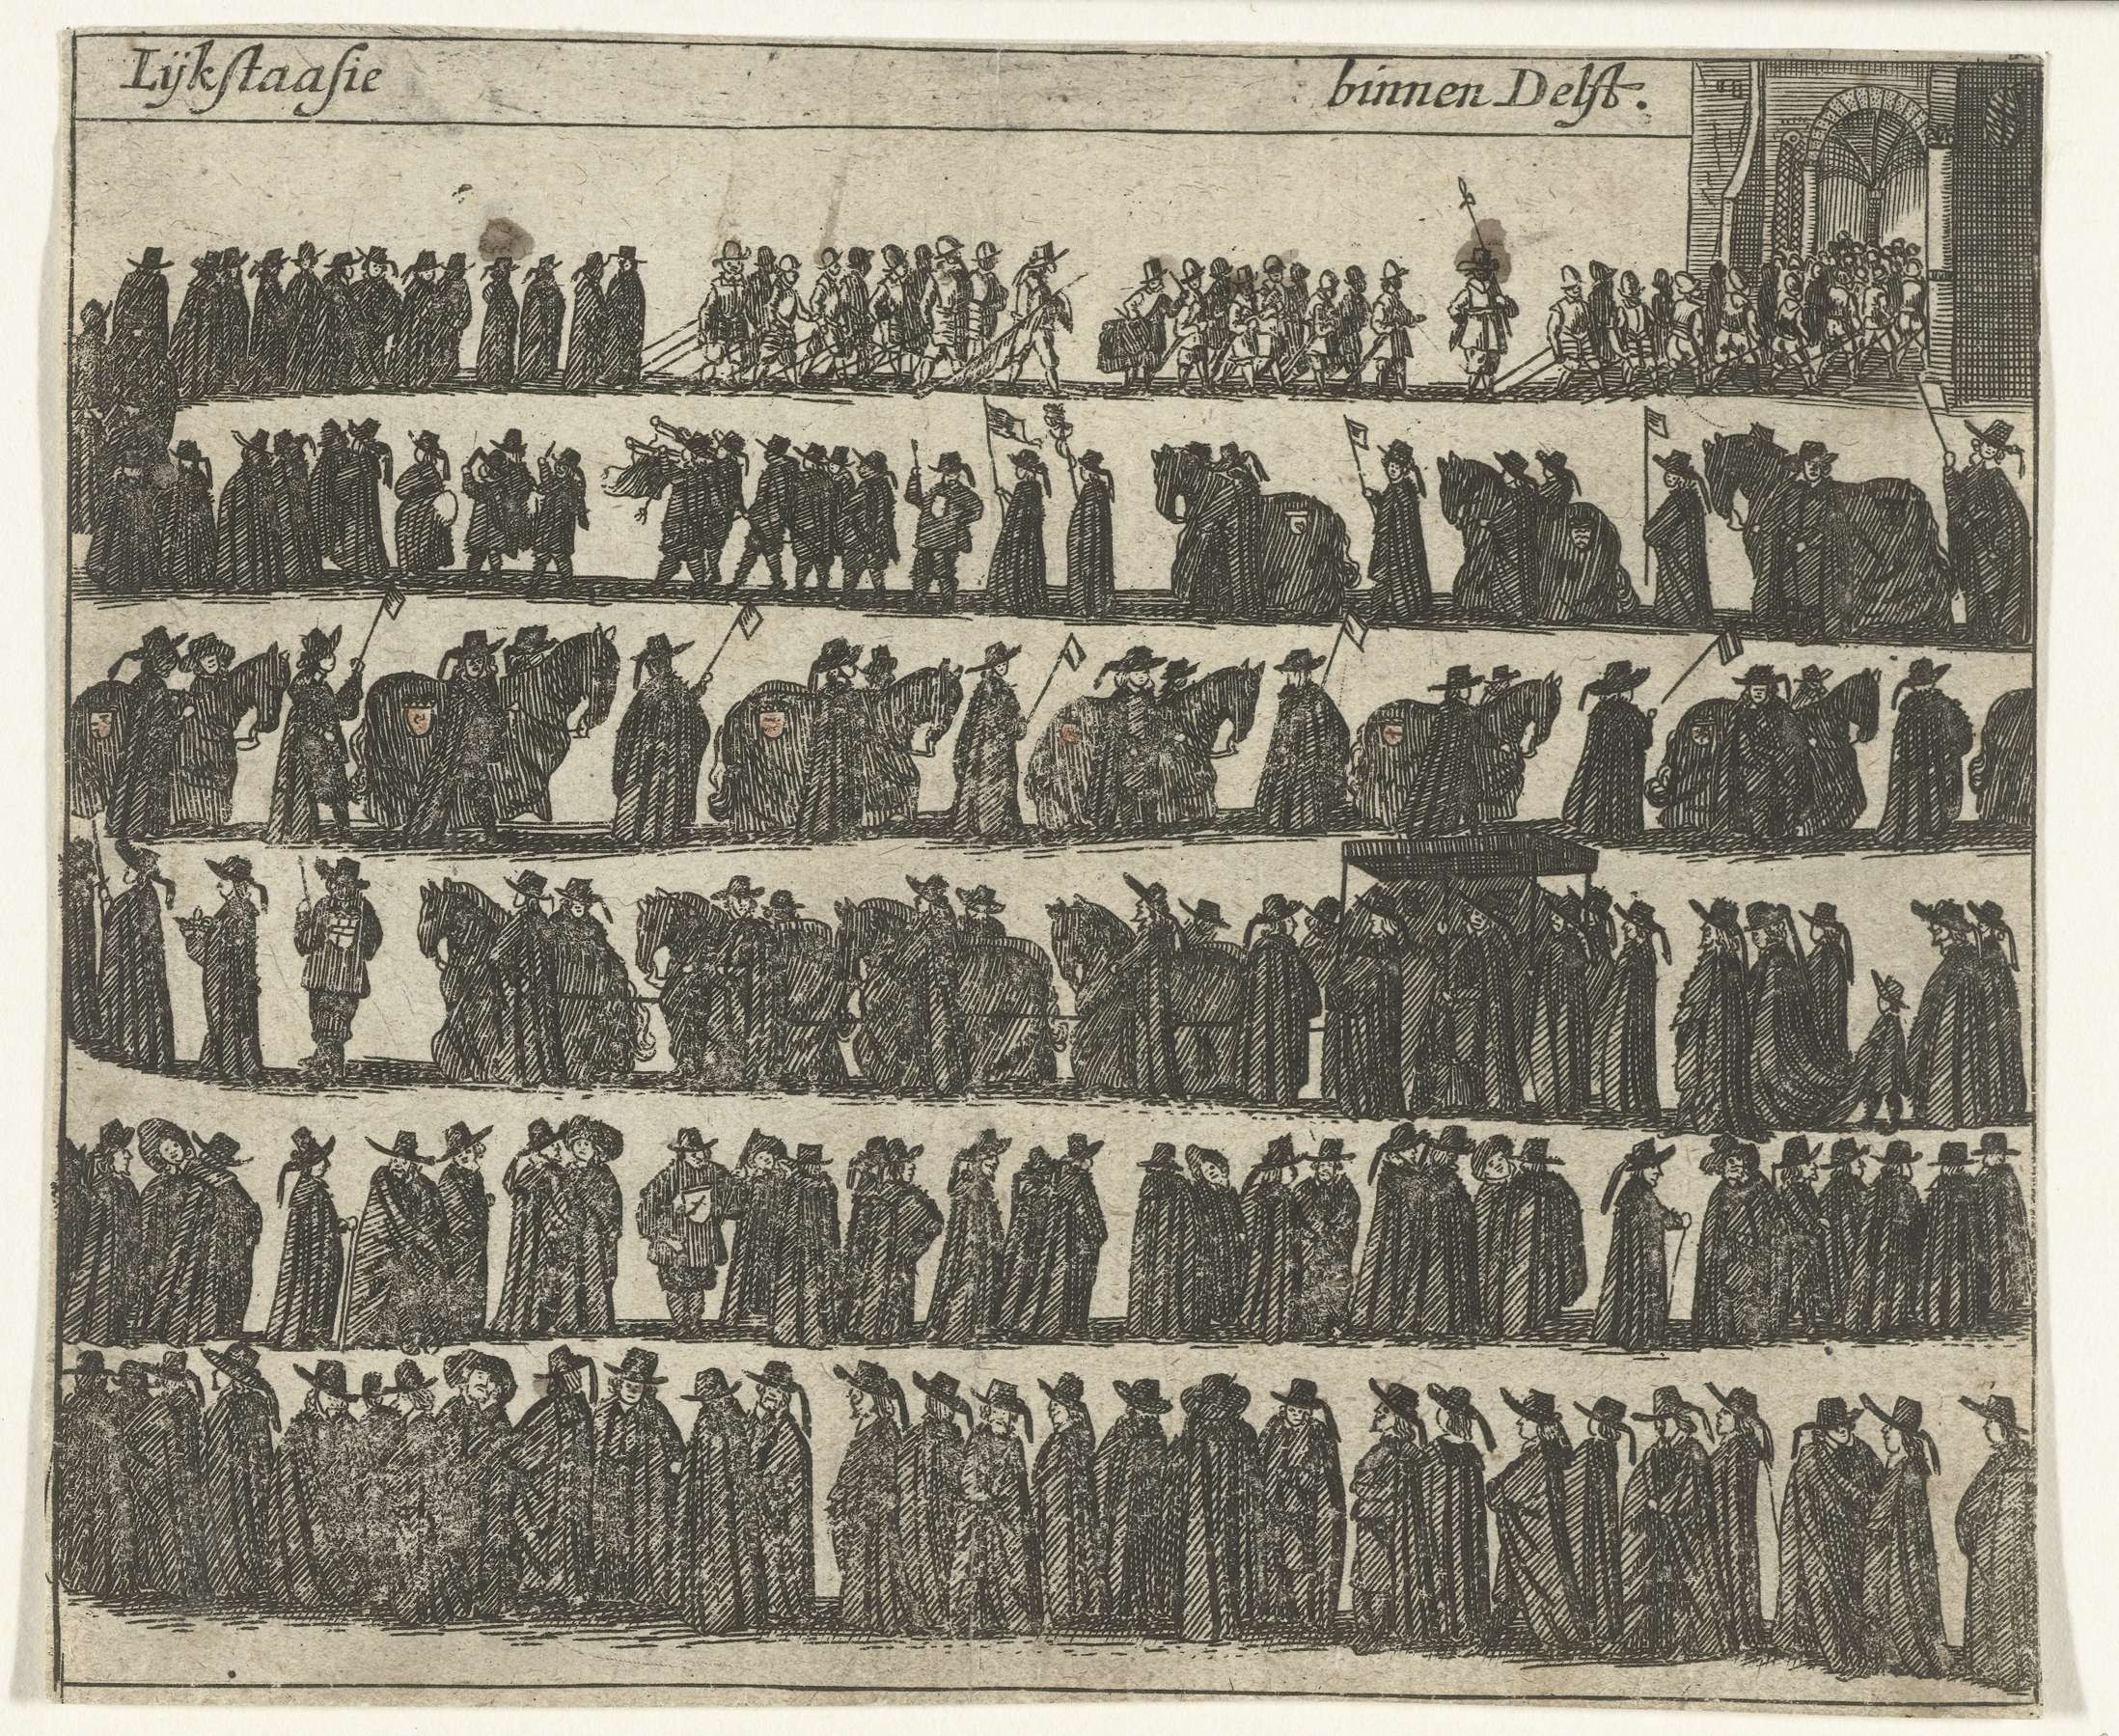 Lijkstaasie binnen Delft.